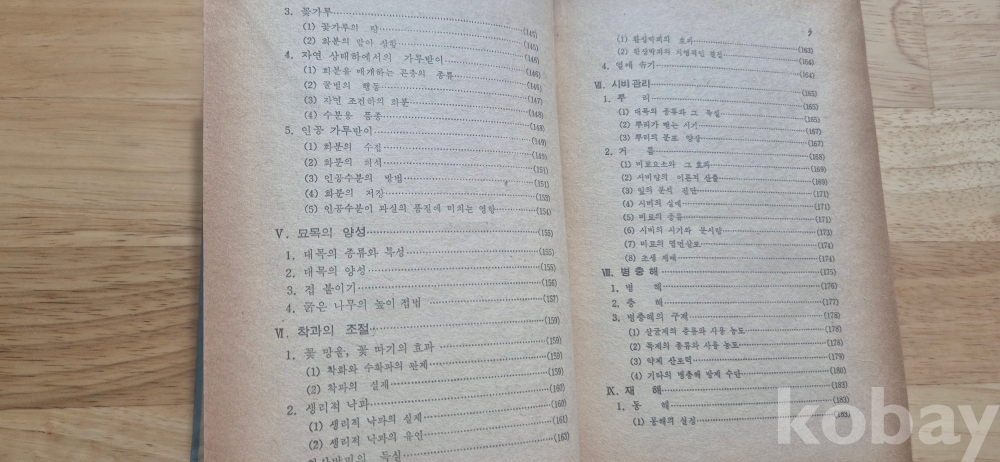 3. 꽃가루 (145)
(1) 꽃가루의 탐 (145)
(2) 화분의 발아 시험 (145)
4. 자연 상태하에서의 가루받이 (146)
(1) 화분을 매개하는 곤충의 종류 (146)
(2) 꿀벌의 행동 (146)
(3) 자연 조건하의 화분 (147)
(4) 수분용 품종 (148)
5. 인공 가루받이 (149)
(1) 화분의 수집 (149)
(2) 화분의 희석 (149)
(3) 인공수분의 방법 (151)
(4) 화분의 저장 (153)
(5) 인공수분이 과실의 품질에 미치는 영향 (154)
Ⅴ. 묘목의 양성 (155)
1. 대목의 종류와 특성 (155)
2. 대목의 양성 (155)
3. 접 붙이기 (156)
4. 굵은 나무의 높이 접법 (157)
Ⅵ. 착과의 조절 (159)
1. 꽃 망울, 꽃 따기의 효과 (159)
(1) 착화와 수확과의 관계 (159)
(2) 착과의 실제 (159)
2. 생리적 낙과 (160)
(1) 생리적 낙과의 실제 (160)
(2) 생리적 낙과의 유인 (161)
환상박피의 득실 (163)
7
(1) 환상박피의 효과 (163)
(2) 환상박피의 치명적인 결점 (164)
4. 열매 솎기 (164)
Ⅶ. 시비 관리 (165)
1. 뿌리 (165)
(1) 대목의 종류와 그 특질 (165)
(2) 뿌리가 뻗는 시기 (167)
(3) 뿌리의 분포 양상 (167)
2. 거름 (168)
(1) 비료요소와 그 효과 (169)
(2) 시비량의 이론적 산출 (169)
(3) 잎의 분석 진단 (171)
(4) 시비의 실제 (171)
(5) 비료의 종류 (171)
(6) 시비의 시기와 분시량 (173)
(7) 비료의 엽면살포 (174)
(8) 초생 재배 (174)
Ⅷ. 병충해 (175)
1. 병해 (176)
2. 충해 (177)
3. 병충해의 구제 (178)
(1) 살균제의 종류와 사용 농도 (178)
(2) 독제의 종류와 사용 농도 (178)
(3) 약제 살포력 (179)
(4) 기타의 병충해 방제 수단 (180)
Ⅸ. 재해 (183)
1. 동해 (183)
(1) 동해의 실정 (183)
kobay